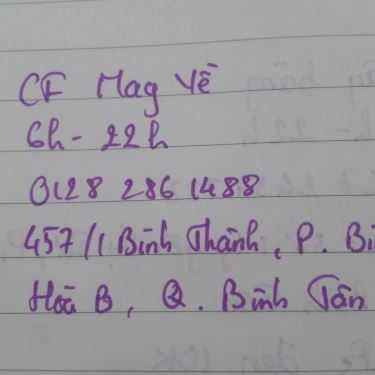 CF Mag Yề
6h - 22h
0128 286 1488
457/1 Bình Thành, P. Bì
Hoà B, Q. Bình Tân